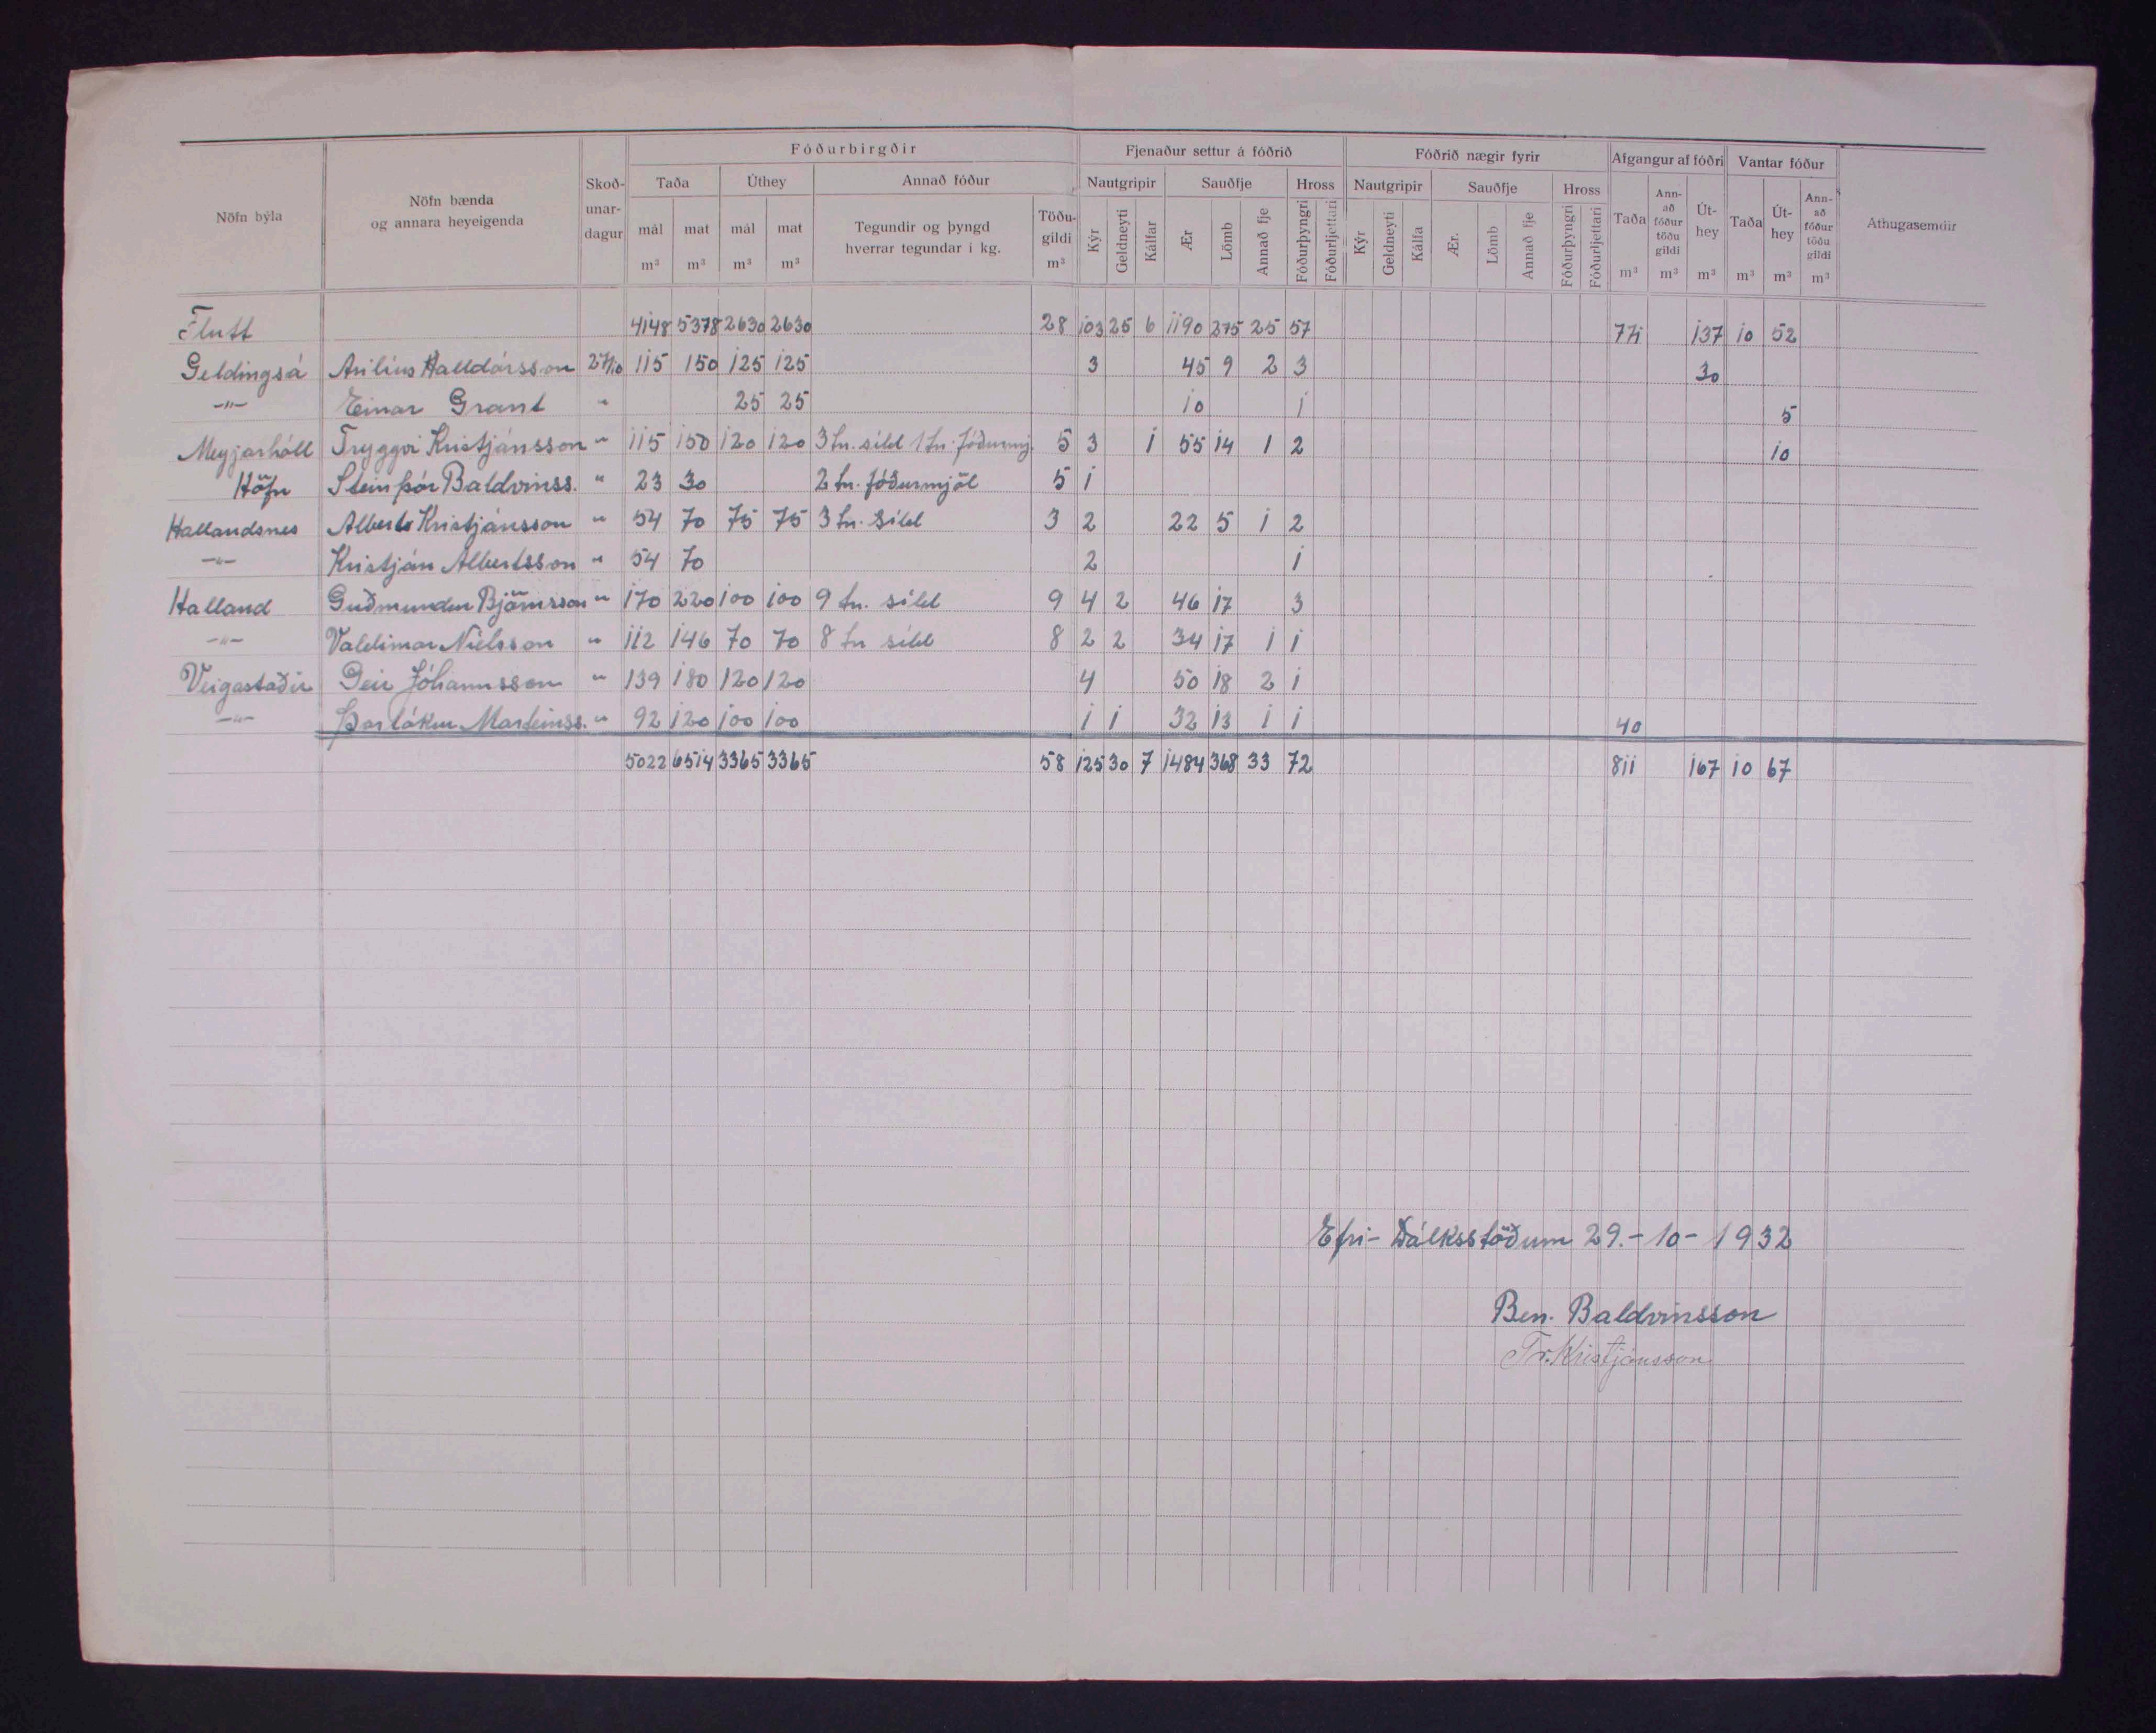 Fóðurbirgðir Fjenaður settur á fóðrið Fóðrið nægir fyrir Afgangur af fóðri Vantar fóður
Nöfn býla Nöfn bænda og annara heyeigenda Skoð-unar-dagur Taða Úthey Annað fóður Nautgripir Sauðfje Hross Nautgripir Sauðfje Hross Taða Ann-að fóður töðu gildi Út-hey Taða Út-hey Ann-að fóður töðu gildi Athugasemdir
mál mat mál mat Tegundir og þyngd hverrar tegundar í kg. Töðu-gildi Kýr Geldneyti Kálfar Ær Lömb Annað fje Fóðurþyngri Fóðurljettari Kýr Geldneyti Kálfa Ær. Lömb Annað fje Fóðurþyngri Fóðurljettari
m³ m³ m³ m³ m³ m³ m³ m³ m³ m³ m³
Flutt 4148 5378 2630 2630 28 103 25 6 1190 275 25 57 771 137 10 52
Geldingsá Asilíus Halldórsson 27/10 115 150 125 125 3 45 9 2 3 30
-"- Einar Grant " 25 25 10 1 5
Meyjarhóll Tryggvi Kristjánsson " 115 150 120 120 3 tn. síld 1 tn. fóðurmj. 5 3 1 55 14 1 2 10
Höfn Steinþór Baldvinss. " 23 30 2 tn. fóðurmjöl 5 1
Hallandsnes Albert Kristjánsson " 54 70 75 75 3 tn. Síld 3 2 22 5 1 2
-"- Kristján Albertsson " 54 70 2 1
Halland Guðmundur Björnsson " 170 220 100 100 9 tn. síld 9 4 2 46 17 3
-"- Valdimar Níelsson " 112 146 70 70 8 tn síld 8 2 2 34 17 1 1
Veigastaðir Geir Jóhannsson " 139 180 120 120 4 50 18 2 1
-"- Þorlákur Marteinss. " 92 120 100 100 1 1 32 13 1 1 40
5022 6514 3365 3365 58 125 30 7 1484 368 33 72 811 167 10 67
Efri-Dálksstöðum 29.-10-1932
Ben. Baldvinsson
Tr. Kristjánsson